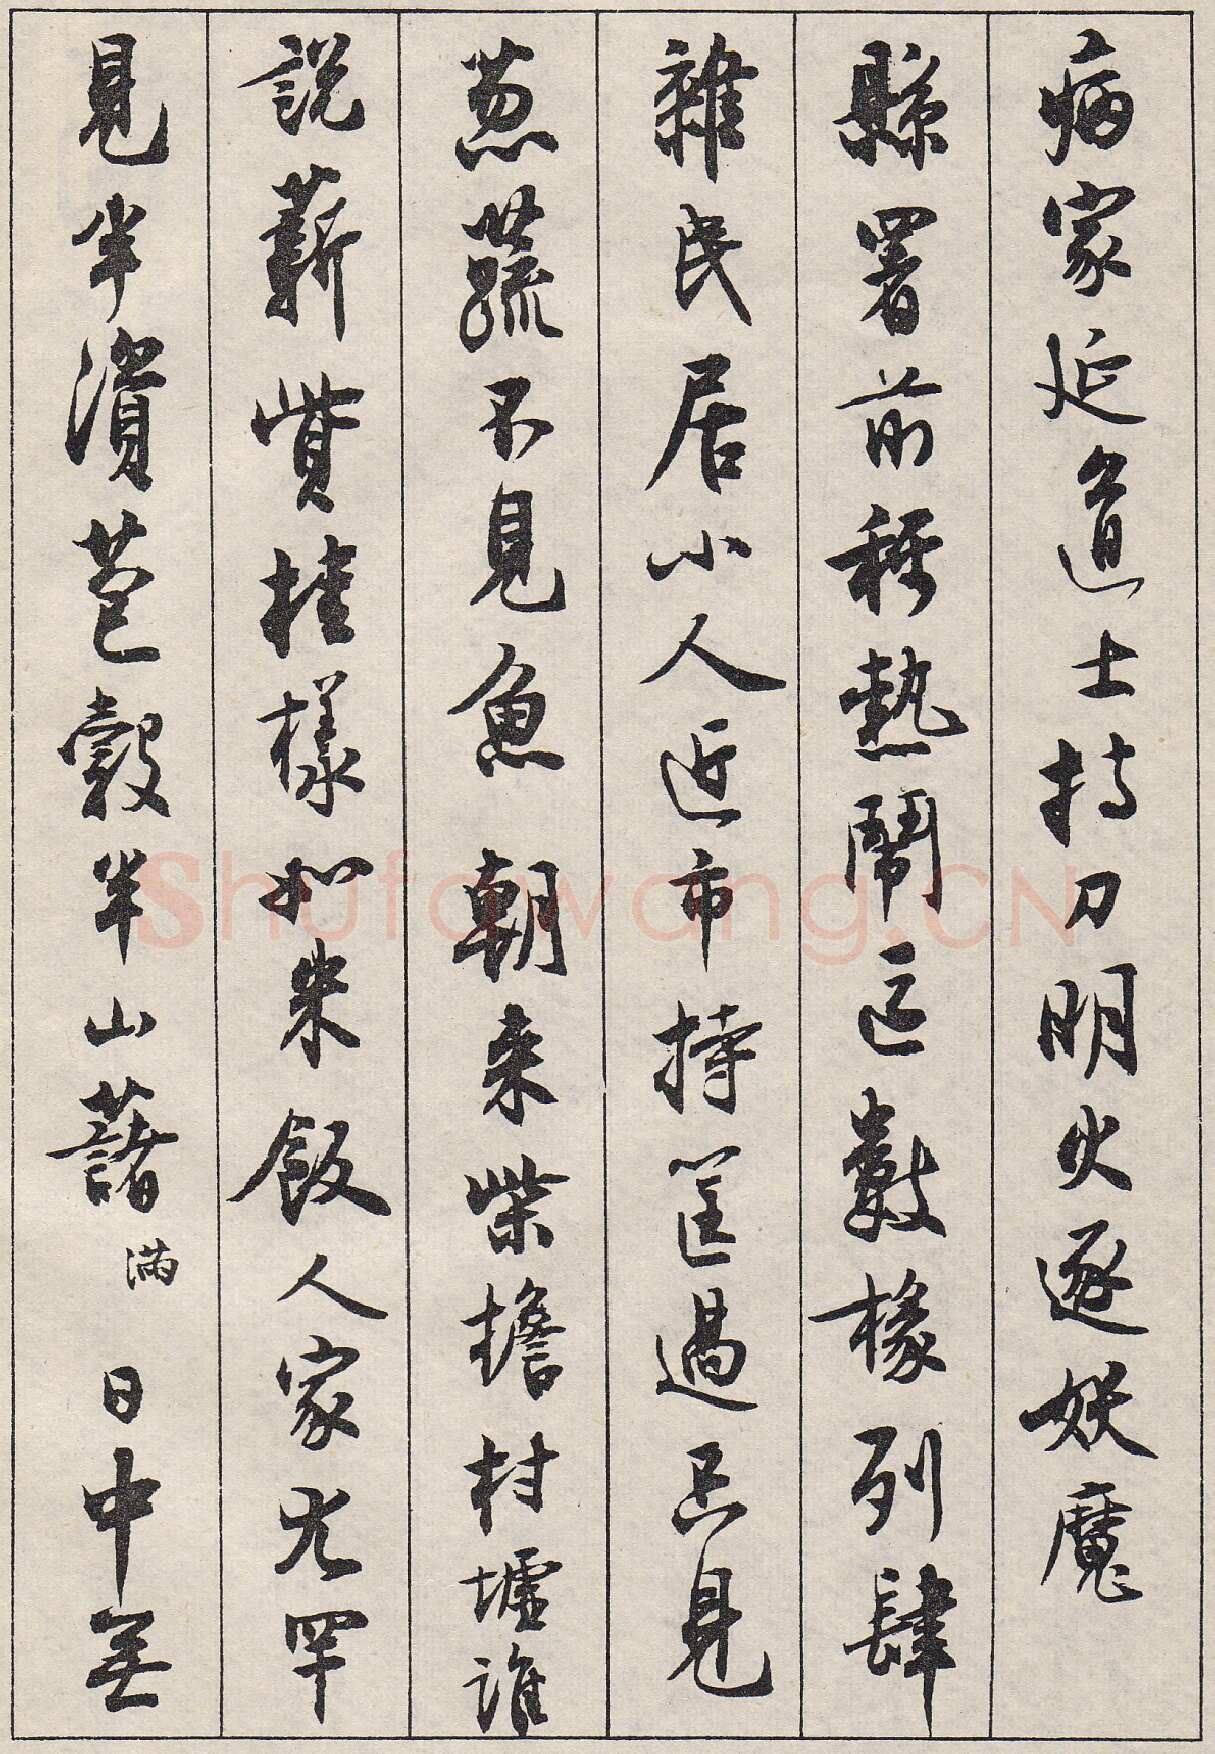 病家延道士持刀明火逐妖魔
縣署前稱熱鬧區數椽列肆
雜民居小人近市持筐過只見
葱蔬不見魚朝来柴擔村墟誰
說薪貲桂樣如米飯人家尤罕
見半瀆苞穀半山藷滿日中無
Shufawang.CN